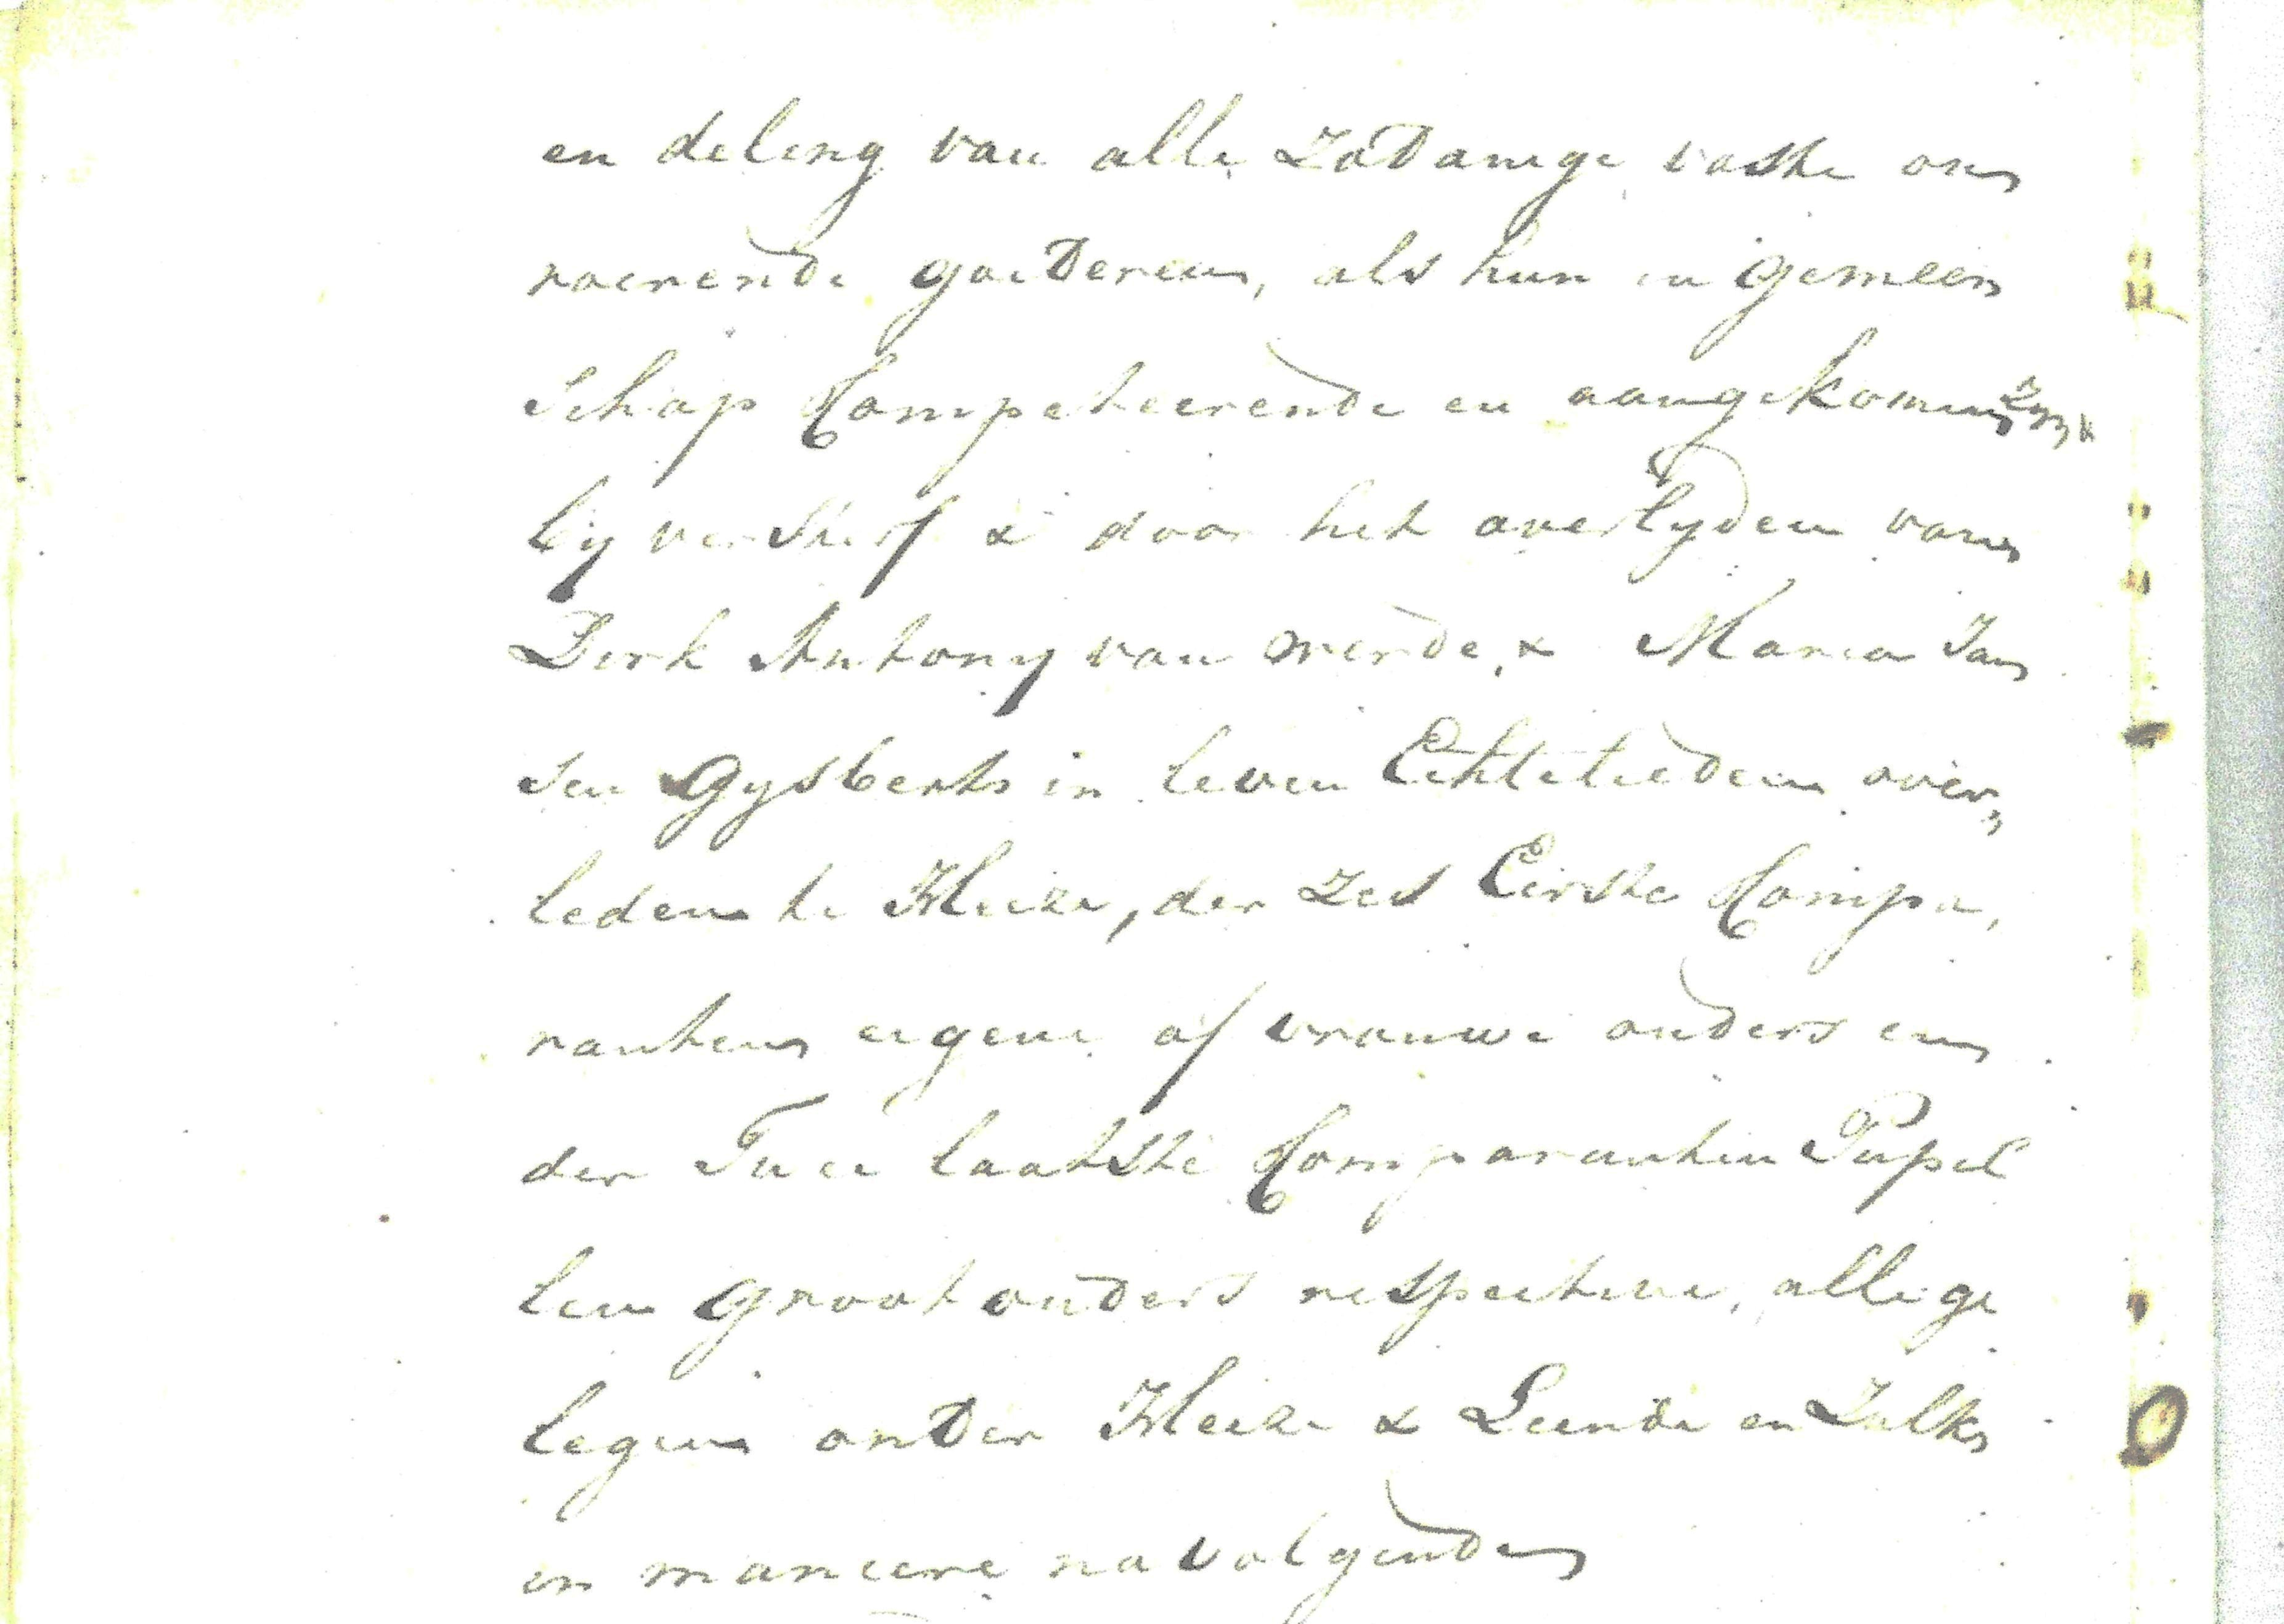 en deling van alle zodanige vaste on
roerende goederen, als hun in gemeen
schap Competeerende en aangekomen zyn
by versterf & door het overlyden van
Dirk Antony van mierde, & Maria Jan
sen Gysberts in leven Echtelieden over„
leden te Heeze, der zes Eerste Compa„
ranten eigene of vrouwe ouders en
der Twee laatste Comparanten Pupil
len grootouders respective, alle ge
legen onder Heeze & Leende en Zulks
in maniere navolgende